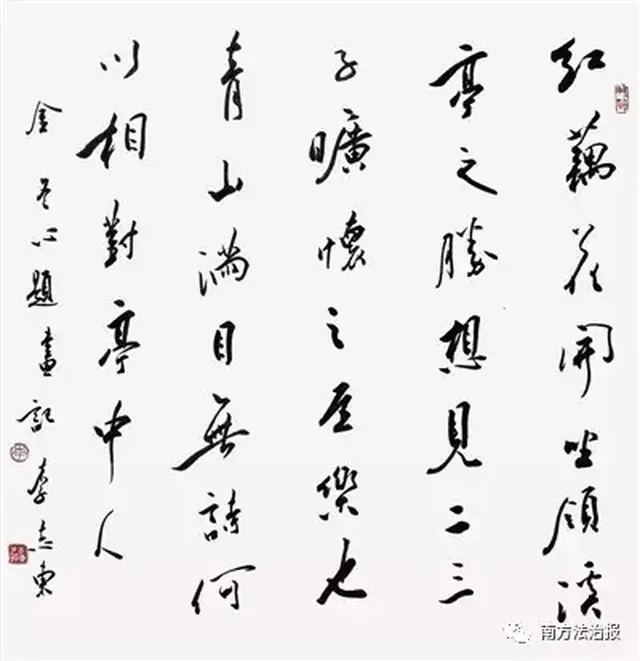 紅藕花開坐領溪
亭之勝想見二三
子曠懷之樂也
青山滿目無詩何
以相對亭中人
金冬心題畫記 李志東
南方法治报